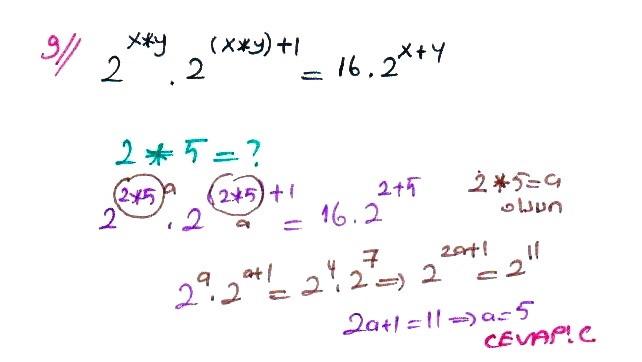 9// 2^(x*y) . 2^((x*y)+1) = 16 . 2^(x+y)
2 * 5 = ?
2^(2*5) a . 2^((2*5)+1) a = 16 . 2^(2+5) 2*5=a
olsun
2^a . 2^(a+1) = 2^4 . 2^7 ⇒ 2^(2a+1) = 2^11
2a+1 = 11 ⇒ a = 5
CEVAP: C